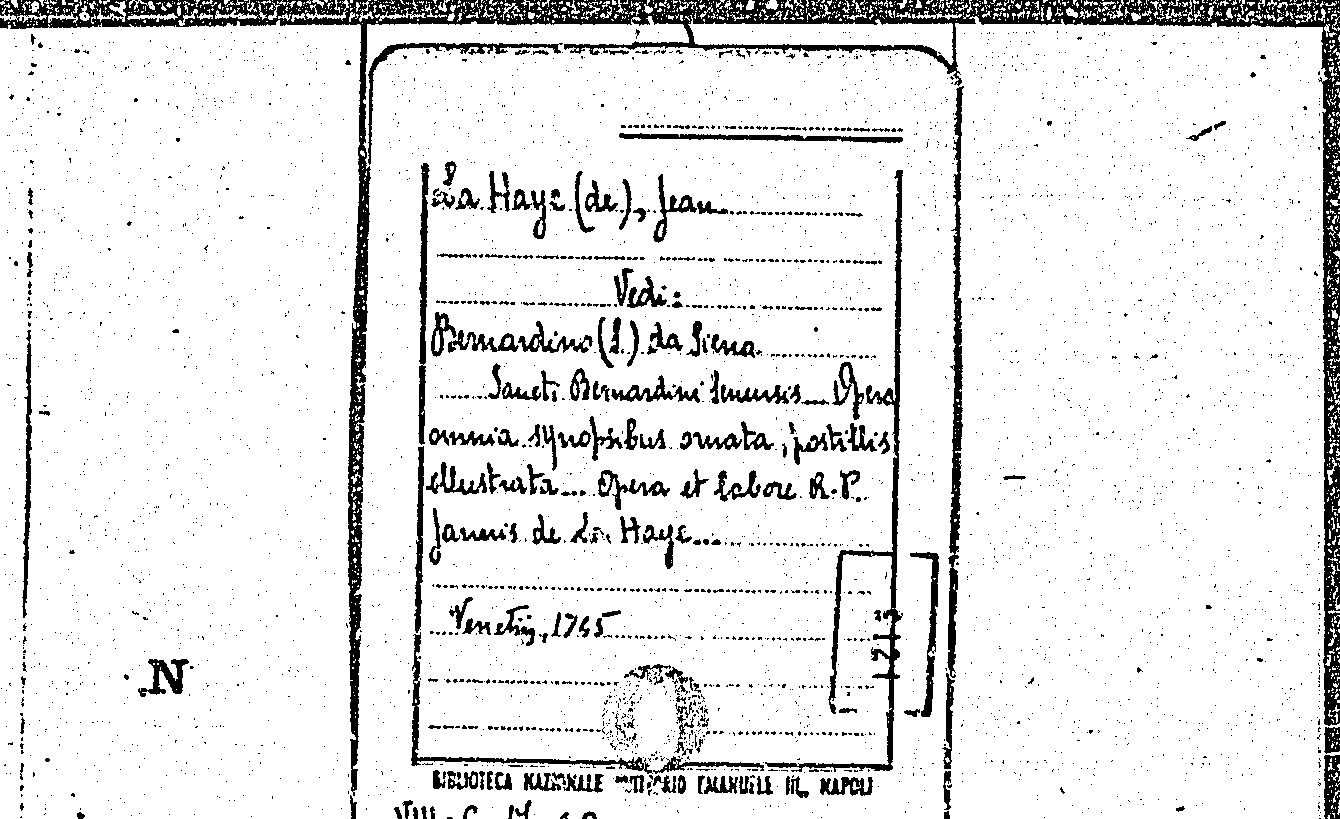 La Haye (de), Jean
Vedi:
Bernardino (S.) da Siena
Sancti Bernardini Senensis... Opera
omnia synopsibus ornata, postillis
illustrata... Opera et labore R.P.
Joannis de La Haye...
Venetiis, 1745
1713
N
BIBLIOTECA NAZIONALE VITTORIO EMANUELE III, NAPOLI